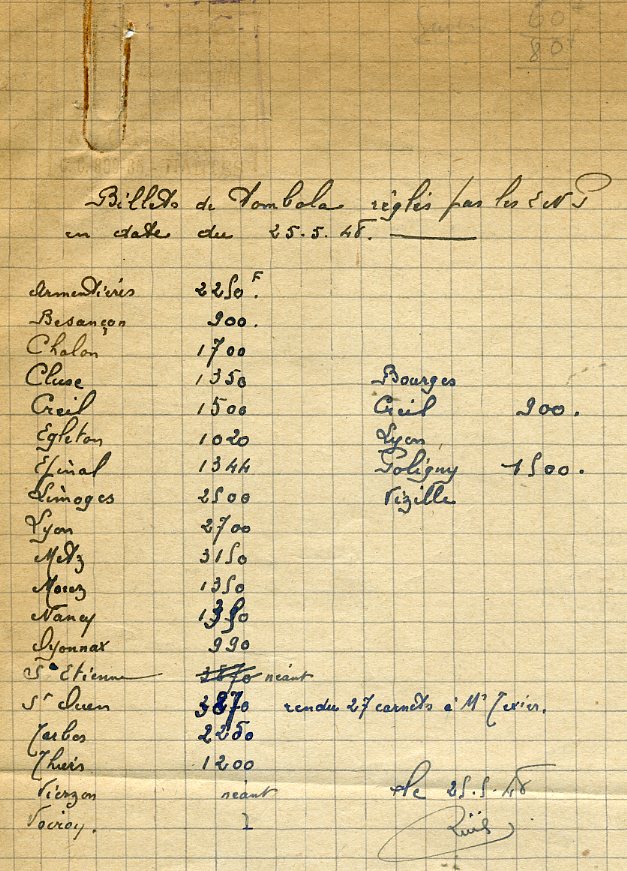 60
80
Billets de Tombola réglés par les E N P
en date du 25.5.48.
Armentières 2250 F.
Besançon 900.
Chalon 1700
Cluse 1350 Bourges
Creil 1500 Creil 900.
Egleton 1020 Lyon
Epinal 1344 Poligny 1500.
Limoges 2500 Vizille
Lyon 2700
Metz 3150
Morez 1350
Nancy 1350
Oyonnax 990
St Etienne 3870 néant
St Ouen 3870 rendu 27 carnets à Mr Texier.
Tarbes 2250
Thiers 1200
Vierzon néant Le 25.5.48
Voiron.